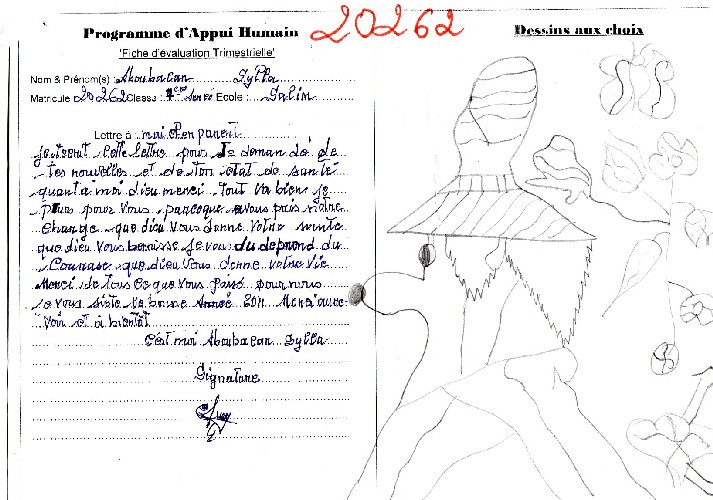 Programme d'Appui Humain
20262
Dessins aux choix
'Fiche d'évaluation Trimestrielle'
Nom & Prénom(s) : Aboubacan Sylla
Matricule 20262 Classe : 7ere Anné Ecole : Salim
Lettre à : mai d'en parent
Je t'ecrit cette lettre pour te deman dé de
tes nouvelles et de ton etat de santé
quant à moi dieu menci tout va bien je
pour vous parceque avous pris notre
change que dieu vous donne votre sante
que dieu vous benisse je vous du deprend du
Counase que dieu vous donne votre vie
Menci de tous ce que vous pour nous
je vous bonne Année 2011 Menci aure
voir et à bientôt
C'est moi Aboubacan Sylla
Signature